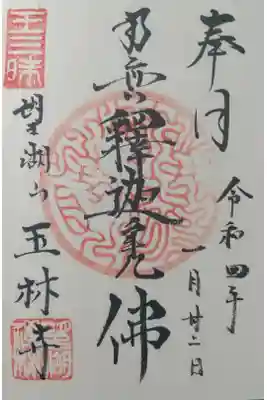 奉拝
令和四年
一月廿二日
南無釋迦牟尼佛
王三昧
望湖山 玉林寺